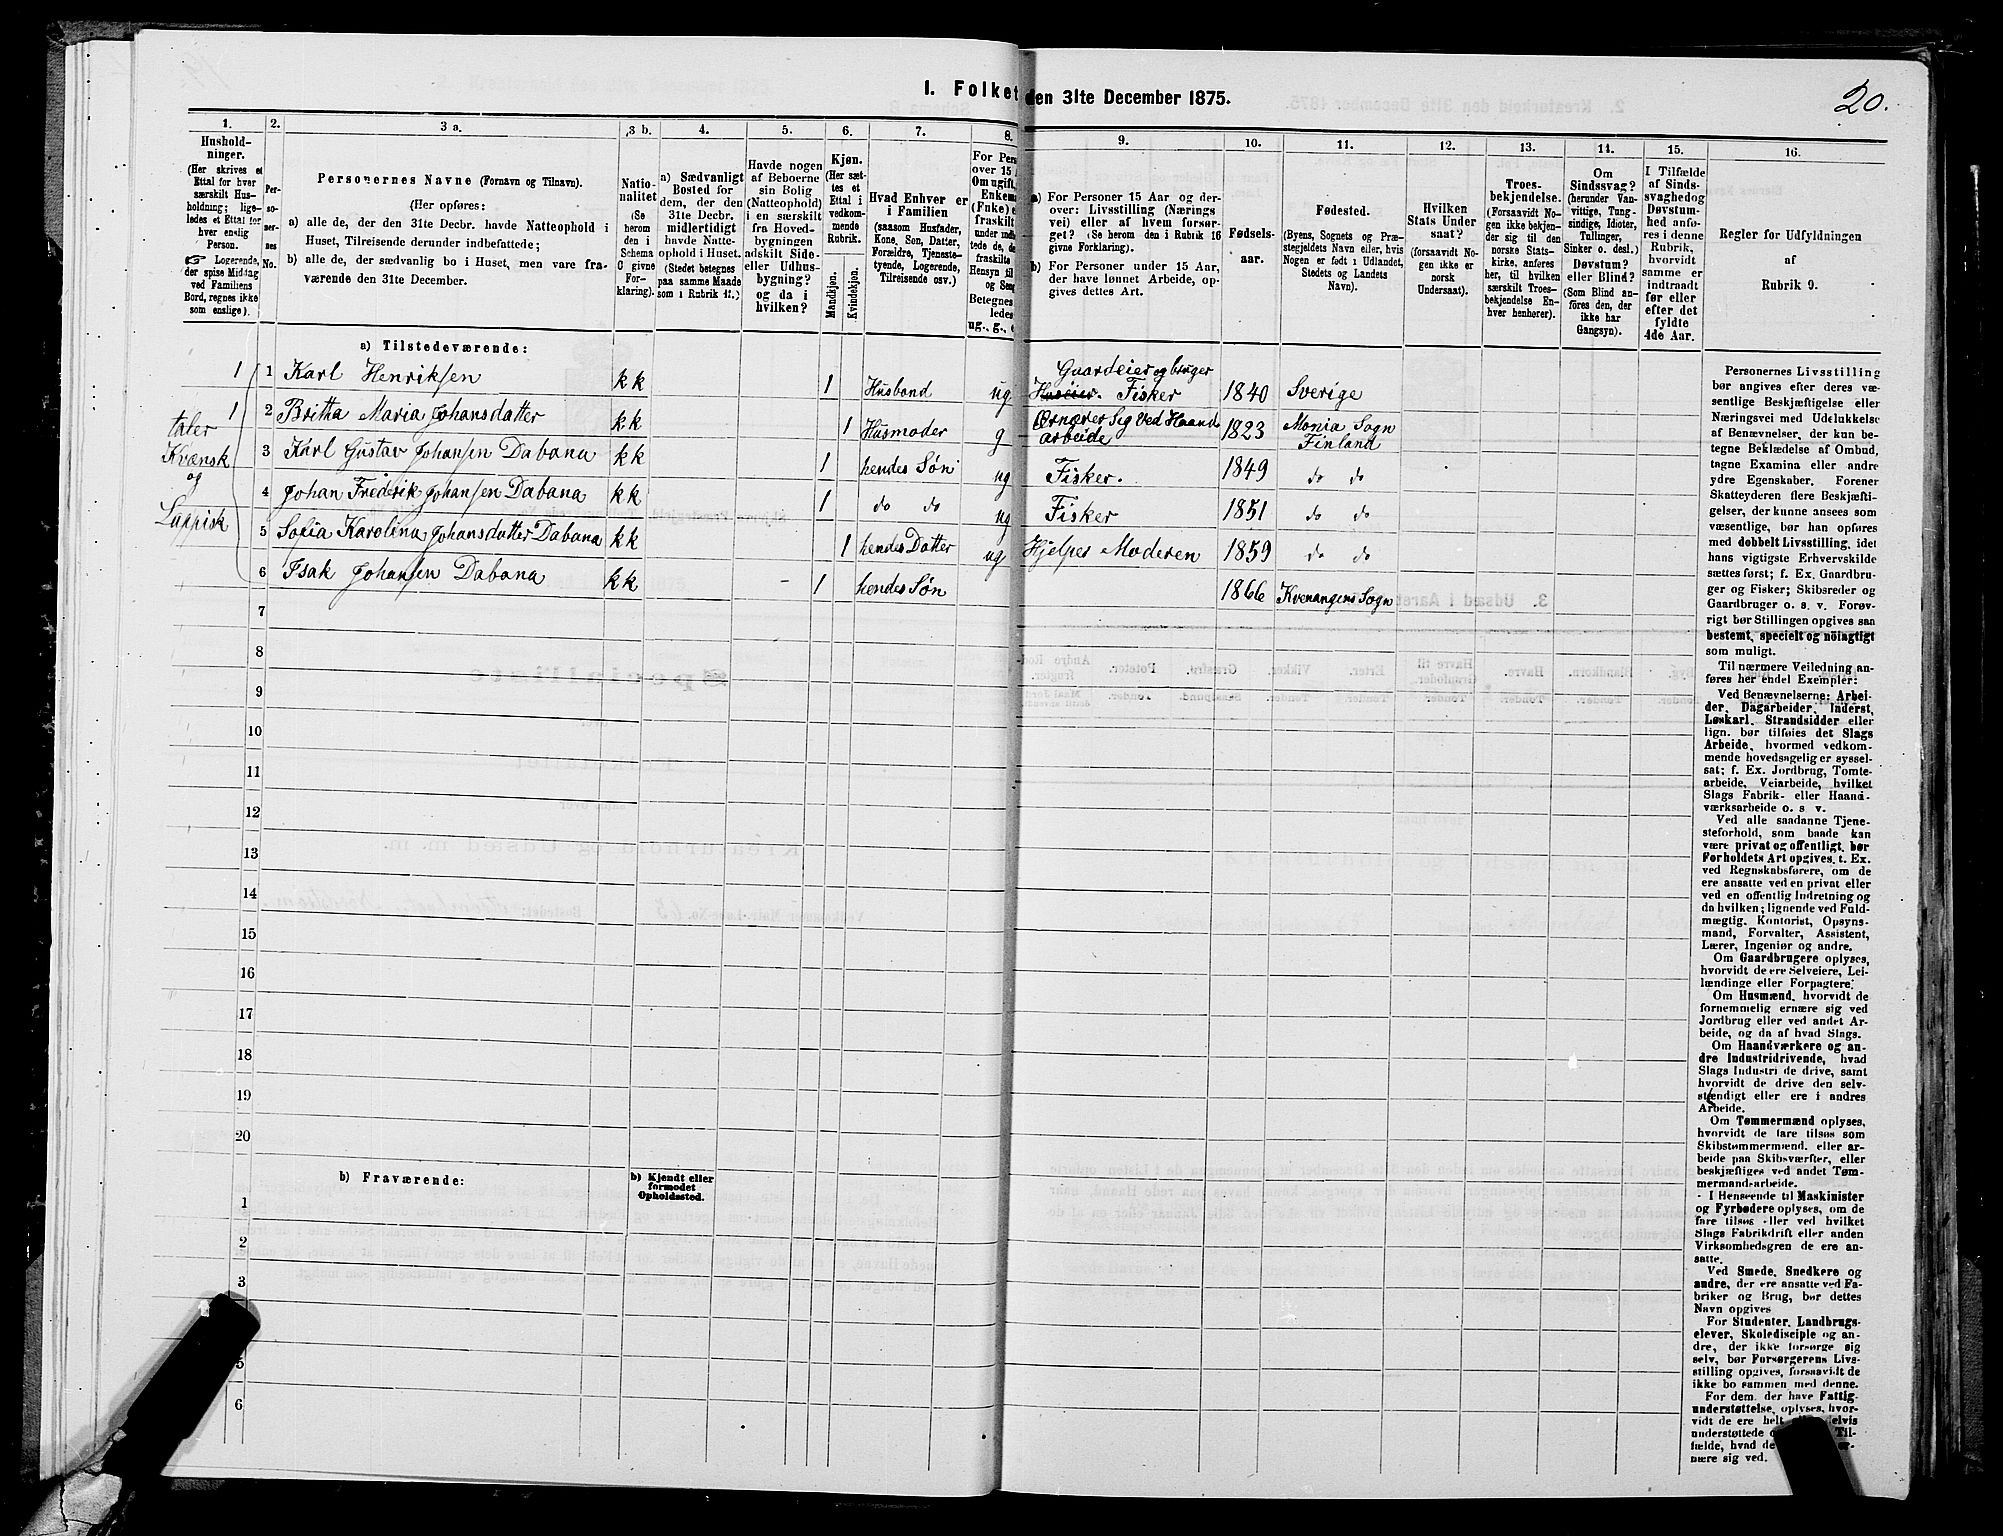 20.
I. Folket den 31te December 1875.
1. 2. 3 a. 3 b. 4. 5. 6. 7. 8. 9. 10. 11. 12. 13. 14. 15. 16.
Hushold-
ninger.
(Her skrives et
Ettal for hver
særskilt Hus-
holdning; lige-
ledes et Ettal for
hver enslig
Person.
☞ Logerende,
der spise Middag
ved Familiens
Bord, regnes ikke
som enslige).
Per-
so-
ner-
nes
No.
Personernes Navne (Fornavn og Tilnavn).
(Her opføres:
a) alle de, der den 31te Decbr. havde Natteophold i
Huset, Tilreisende derunder indbefattede;
b) alle de, der sædvanlig bo i Huset, men vare fra-
værende den 31te December.
Natio-
nalitet
(Se
herom
den i
Schema
C givne
For-
klaring).
a) Sædvanligt
Bosted for
dem, der den
31te Decbr.
midlertidigt
havde Natte-
ophold i Huset.
(Stedet betegnes
paa samme Maade
som i Rubrik 11.)
Havde nogen
af Beboerne
sin Bolig
(Natteophold)
i en særskilt
fra Hoved-
bygningen
adskilt Side-
eller Udhus-
bygning?
og da i
hvilken?
Kjøn.
(Her sæt-
tes et
Ettal i
vedkom-
mende
Rubrik.
Mandkjøn.
Kvindekjøn.
Hvad Enhver er
i Familien
(saasom Husfader,
Kone, Søn, Datter,
Forældre, Tjeneste-
tyende, Logerende,
Tilreisende osv.)
For Pers
over 15 A
Om ugift,
Enkem
(Fnke) e
fraskilt
Hensyn til
og Seng
Betegnes
ledes
ug., g., e
a) For Personer 15 Aar og der-
over: Livsstilling (Nærings
vei) eller af hvem forsør-
get? (Se herom den i Rubrik 16
givne Forklaring).
b) For Personer under 15 Aar,
der have lønnet Arbeide, op-
gives dettes Art.
Fødsels-
aar.
Fødested.
(Byens, Sognets og Præ-
stegjeldets Navn eller, hvis
Nogen er født i Udlandet,
Stedets og Landets
Navn).
Hvilken
Stats Under
saat?
(forsaavidt No-
gen ikke er
norsk
Undersaat).
Troes-
bekjendelse.
(Forsaavidt No-
gen ikke bekjen-
der sig til den
norske Stats-
kirke, anføres
her, til hvilken
særskilt Troes-
bekjendelse En-
hver henhører).
Om
Sindssvag?
(herunder Van-
vittige, Tung-
sindige, Idioter,
Tullinger,
Sinker o. desl.)
Døvstum?
eller Blind?
(Som Blind an-
føres den, der
ikke har
Gangsyn).
I Tilfælde
af Sinds-
svaghed og
Døvstum-
hed anfø-
res i denne
Rubrik,
hvorvidt
samme er
indtraadt
før eller
efter det
fyldte
4de Aar.
Regler for Udfyldningen
af
Rubrik 9.
a) Tilstedeværende:
1 1 Karl Henriksen kk 1 Husbond ug Gaardeier og bruger Huseier. Fisker 1840 Sverige
1 2 Britha Maria Johansdatter kk 1 Husmoder g Ernærer Sig ved Haand arbeide 1823 Monia Sogn Finland
taler Kvænsk og Lappisk
3 Karl Gustav Johansen Dabana kk 1 hendes Søn ug Fisker. 1849 do do
4 Johan Frederik Johansen Dabana kk 1 do do ug Fisker 1851 do do
5 Sofia Karolina Johansdatter Dabana kk 1 hendes Datter ug Hjelper Moderen 1859 do do
6 Isak Johansen Dabana kk - 1 hendes Søn 1866 Kvenangens Sogn
7
8
9
10
11
12
13
14
15
16
17
18
19
20
b) Fraværende:
b) Kjendt eller
formodet
Opholdssted.
1
2
3
5
6
Personernes Livsstilling
bør angives efter deres væ-
sentlige Beskjæftigelse eller
Næringsvei med Udelukkelse
af Benævnelser, der kun be-
tegne Beklædelse af Ombud,
tagne Examina eller andre
ydre Egenskaber. Forener
Skatteyderen flere Beskjæfti-
gelser, der kunne ansees som
væsentlige, bør han opføres
med dobbelt Livsstilling, idet
hans vigtigste Erhvervskilde
sættes først; f. Ex. Gaardbru-
ger og Fisker; Skibsreder og
Gaardbruger o. s. v. Forøv-
rigt bør Stillingen opgives saa
bestemt, specielt og nöiagtigt
som muligt.
Til nærmere Veiledning an-
føres her endel Exempler:
Ved Benævnelserne: Arbei-
der, Dagarbeider, Inderst,
Løskarl, Strandsidder eller
lign. bør tilføies det Slags
Arbeide, hvormed vedkom-
mende hovedsagelig er syssel-
sat; f. Ex. Jordbrug, Tomte-
arbeide, Veiarbeide, hvilket
Slags Fabrik- eller Haand-
værksarbeide o. s. v.
Ved alle saadanne Tjene-
steforhold, som baade kan
være privat og offentligt, bør
Forholdets Art opgives, t. Ex.
ved Regnskabsførere, om de
ere ansatte ved en privat eller
ved en offentlig Indretning og
da hvilken; lignende ved Fuld-
mægtig, Kontorist, Opsyns-
mand, Forvalter, Assistent,
Lærer, Ingeniør og andre.
Om Gaardbrugere oplyses,
hvorvidt de ere Selveiere, Lei-
lændinge eller Forpagtere.
Om Husmænd, hvorvidt de
fornemmelig ernære sig ved
Jordbrug eller ved andet Ar-
beide, og da af hvad Slags.
Om Haandværkere og an-
dre Industridrivende, hvad
Slags Industri de drive, samt
hvorvidt de drive den selv-
stændigt eller ere i andres
Arbeide.
Om Tømmermænd oplyses,
hvorvidt de fare tilsøs som
Skibstømmermænd, eller ar-
beide paa Skibsværfter, eller
beskjæftiges ved andet Tøm-
mermandsarbeide.
I Henseende til Maskinister
og Fyrbødere oplyses, om de
fare tilsøs eller ved hvilket
Slags Fabrikdrift eller anden
Virksomhedsgren de ere an-
satte.
Ved Smede, Snedkere og
andre, der ere ansatte ved Fa-
briker og Brug, bør dettes
Navn opgives
For Studenter, Landbrugs-
elever, Skoledisciple og an-
dre, der ikke forsørge sig
selv, bør Forsørgerens Livs-
stilling opgives, forsaavidt de
ikke bo sammen med denne.
For dem, der have Fattig-
understøttelse, oplyses, hvor-
vidt de ere helt elvis
understøttede Til-
fælde, hvad de er-
nære sig ved.